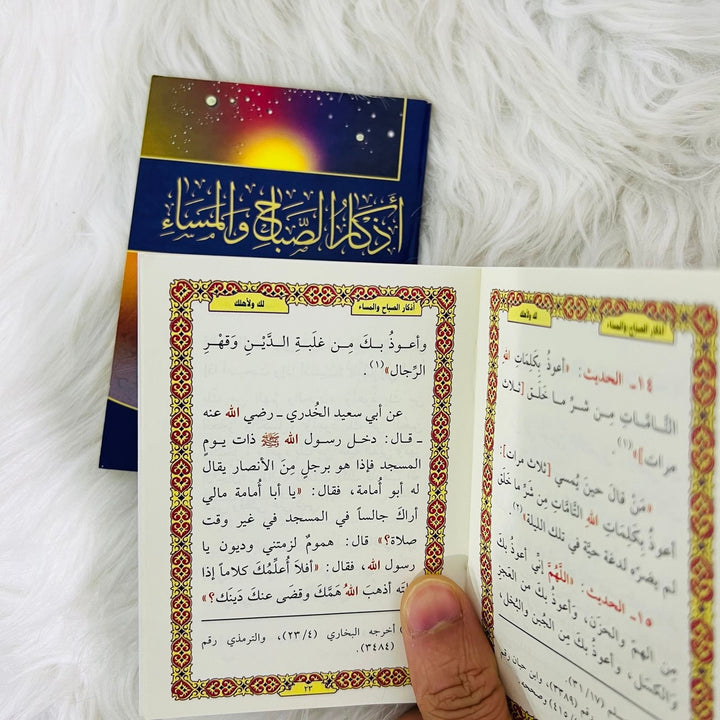 أذكار الصباح والمساء
أذكار الصباح والمساء
لك ولأهلك
١٤ـ الحديث: «أعوذ بكلمات الله
التَّامَّاتِ مِن شرِّ ما خَلَق [ثلاث
مرات]»(١).
«مَنْ قالَ حينَ يُمسي [ثلاث مرات]:
أعوذُ بكَلِمَاتِ الله التَّامَّاتِ مِن شَرِّ ما خَلَق
لم يضره لدغة حيَّة في تلك الليلة»(٢).
١٥ـ الحديث: «اللَّهُمَّ إنِّي أعوذُ بكَ
مِن الهَمِّ والحزن، وَأعوذُ بكَ من العَجزِ
والكَسَل، وأعوذُ بك مِن الجُبنِ والبُخل،
أذكار الصباح والمساء
لك ولأهلك
وأعوذُ بكَ مِن غلَبةِ الدَّيْنِ وَقهْرِ
الرِّجال»(١).
عن أبي سعيد الخُدري ـ رضي الله عنه
ـ قال: دخل رسول الله ﷺ ذات يومٍ
المسجد فإذا هو برجلٍ مِنَ الأنصار يقال
له أبو أُمامة، فقال: «يا أبا أُمامة مالي
أراكَ جالساً في المسجد في غير وقت
صلاة؟» قال: همومٌ لزمتني وديون يا
رسول الله، فقال: «أفلاَ أُعلِّمُكَ كلاماً إذا
أذهبَ اللهُ هَمَّكَ وقضى عنكَ دَينَك؟»
أخرجه البخاري (٢٣/٤)، والترمذي رقم
(٣٤٨٤).
٢٣